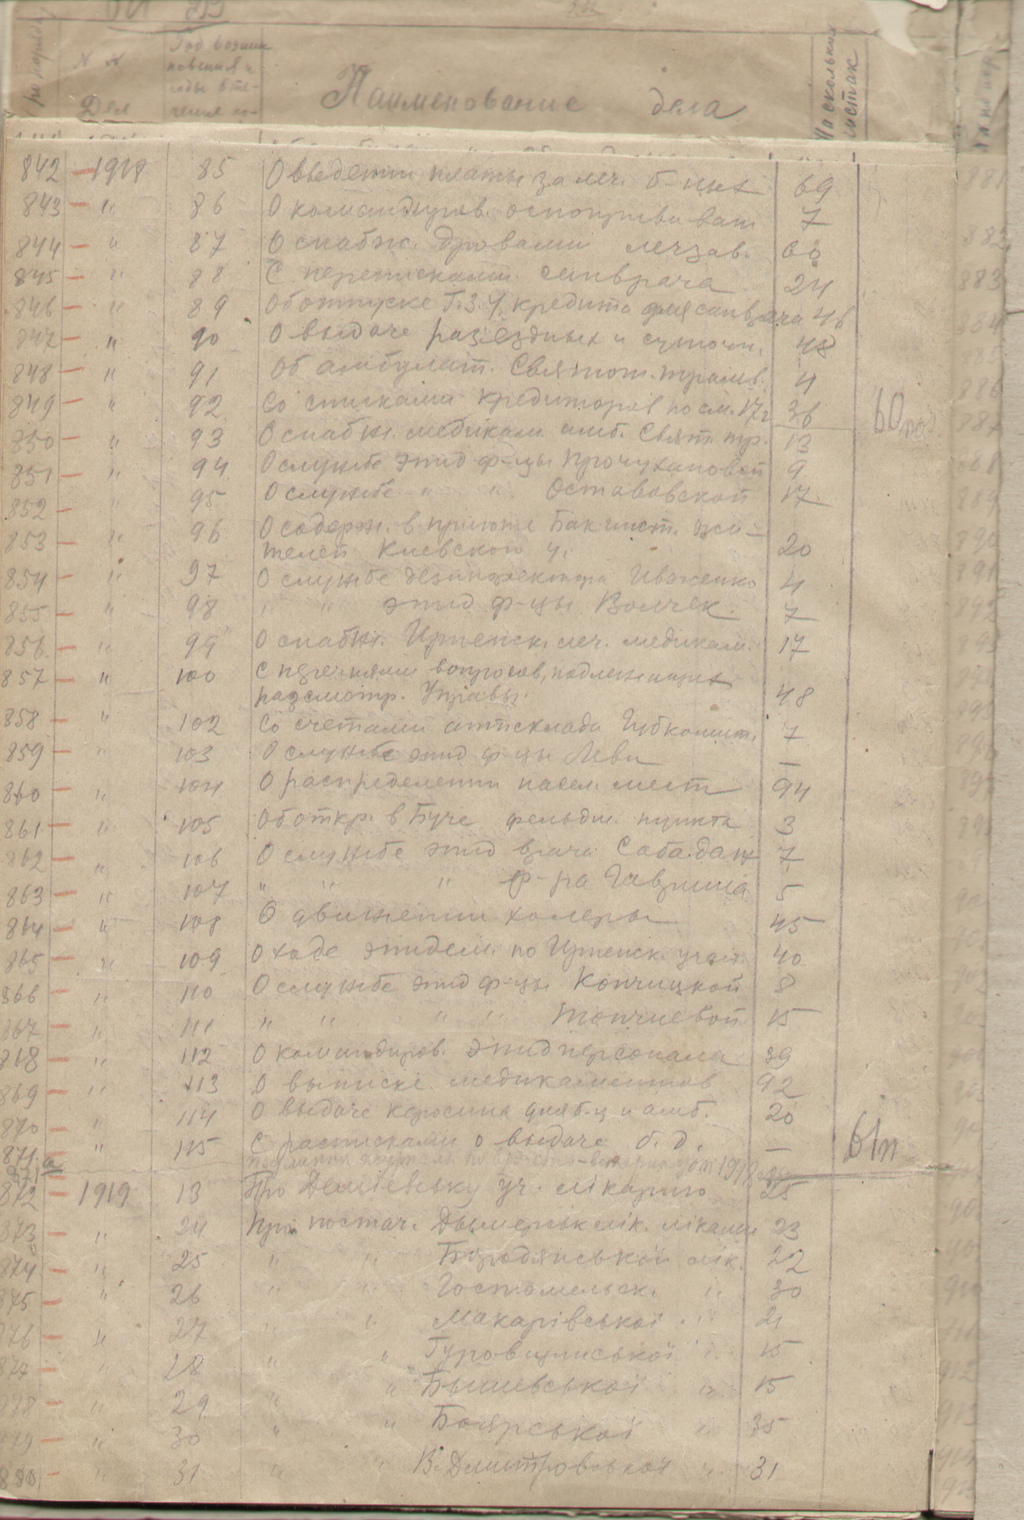 № № Дел
Наименование дела
На скольких листах
842 — 1918 85 О введении платы за леч. б-ных 69
843 — " 86 О командиров. оспопрививат 7
844 — " 87 О снабж. дровами лечзав. 60
845 — " 88 С переписками санврача 24
846 — " 89 Об отпуске Г.З.У. кредита для санврача 46
847 — " 90 О выдаче раз'ездных и суточн. 48
848 — " 91 Об амбулат. Святош. трамв. 4
849 — " 92 Со списками кредиторов по см. 17 г 36
850 — " 93 О снабж. медикам. амб. Свят. тр. 13
851 — " 94 О службе эпид ф-цы Прочухановой 9
852 — " 95 О службе " " Оставовской 17
853 — " 96 О содерж. в приюте жи-
телей Киевской у. 20
854 — " 97 О службе дезинфектора Иваненко 4
855 — " 98 " " эпид ф-цы Волчек. 7
856 — " 99 О снабж. Ирпенск. леч. медикам. 17
857 — " 100 С перечнями вопросов, подлежащих
разсмотр. Управы. 48
858 — " 102 Со счетами аптсклада Губкомит. 7
859 — " 103 О службе эпид ф-цы Леви —
860 — " 104 О распределении насел. мест 94
861 — " 105 Об откр. в Буче фельдш. пункта 3
862 — " 106 О службе эпид врача 7
863 — " 107 " " " ф-ра Гавриша 5
864 — " 108 О движении холеры 45
865 — " 109 О ходе эпидем. по Ирпенск. участ. 40
866 — " 110 О службе эпид ф-цы Кончицкой 8
867 — " 111 " " " " Топчиевой 15
868 — " 112 О командиров. эпидперсонала 39
869 — " 113 О выписке медикаментов 92
870 — " 114 О выдаче керосина для б-ц и амб. 20
871 — " 115 С расписками о выдаче б. д. —
60
61п
871а
872 — 1919 13 Про Деміевську уч. лікарню 25
873 — " 24 Про постач. Дымерськ лік. ліками 23
874 — " 25 " " Бородянської лік. 22
875 — " 26 " " Гостомельск. " 30
876 — " 27 " " Макарівської " 21
877 — " 28 " " Гуровщинської " 15
878 — " 29 " " Бышевської " 15
879 — " 30 " " Боярської " 35
880 — " 31 " " В. Дмитровської " 31